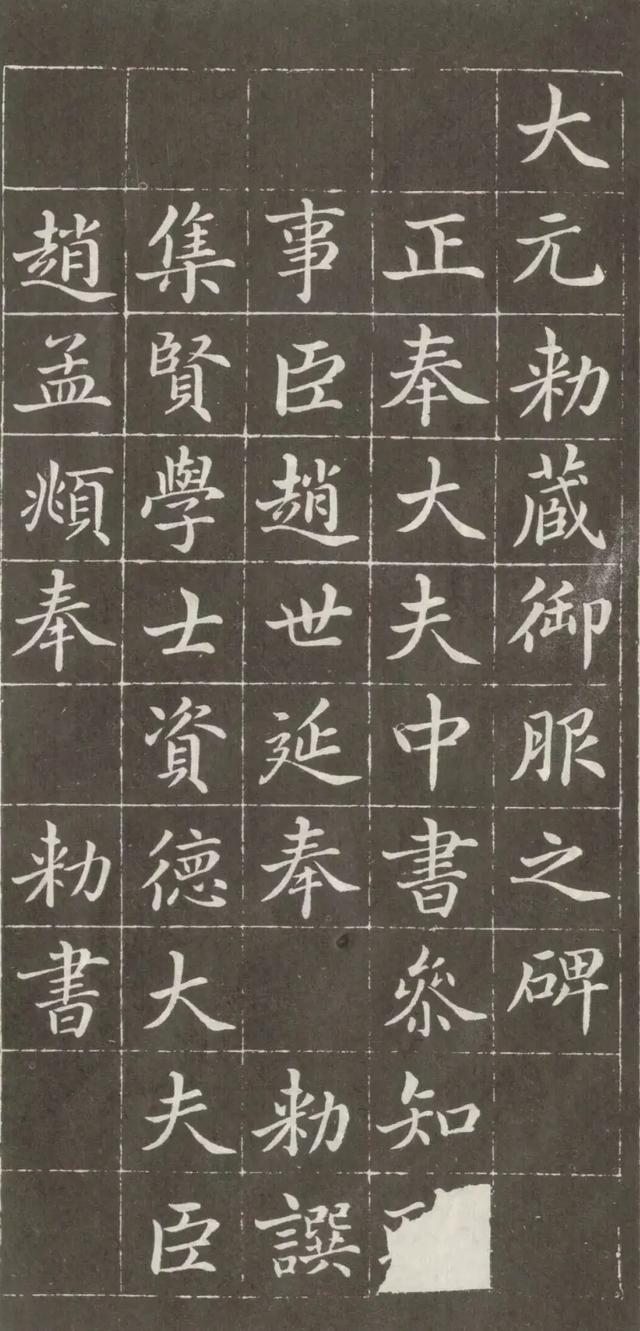 大元勑藏御服之碑
正奉大夫中書叅知
事臣趙世延奉勑譔
集賢學士資德大夫臣
趙孟頫奉勑書